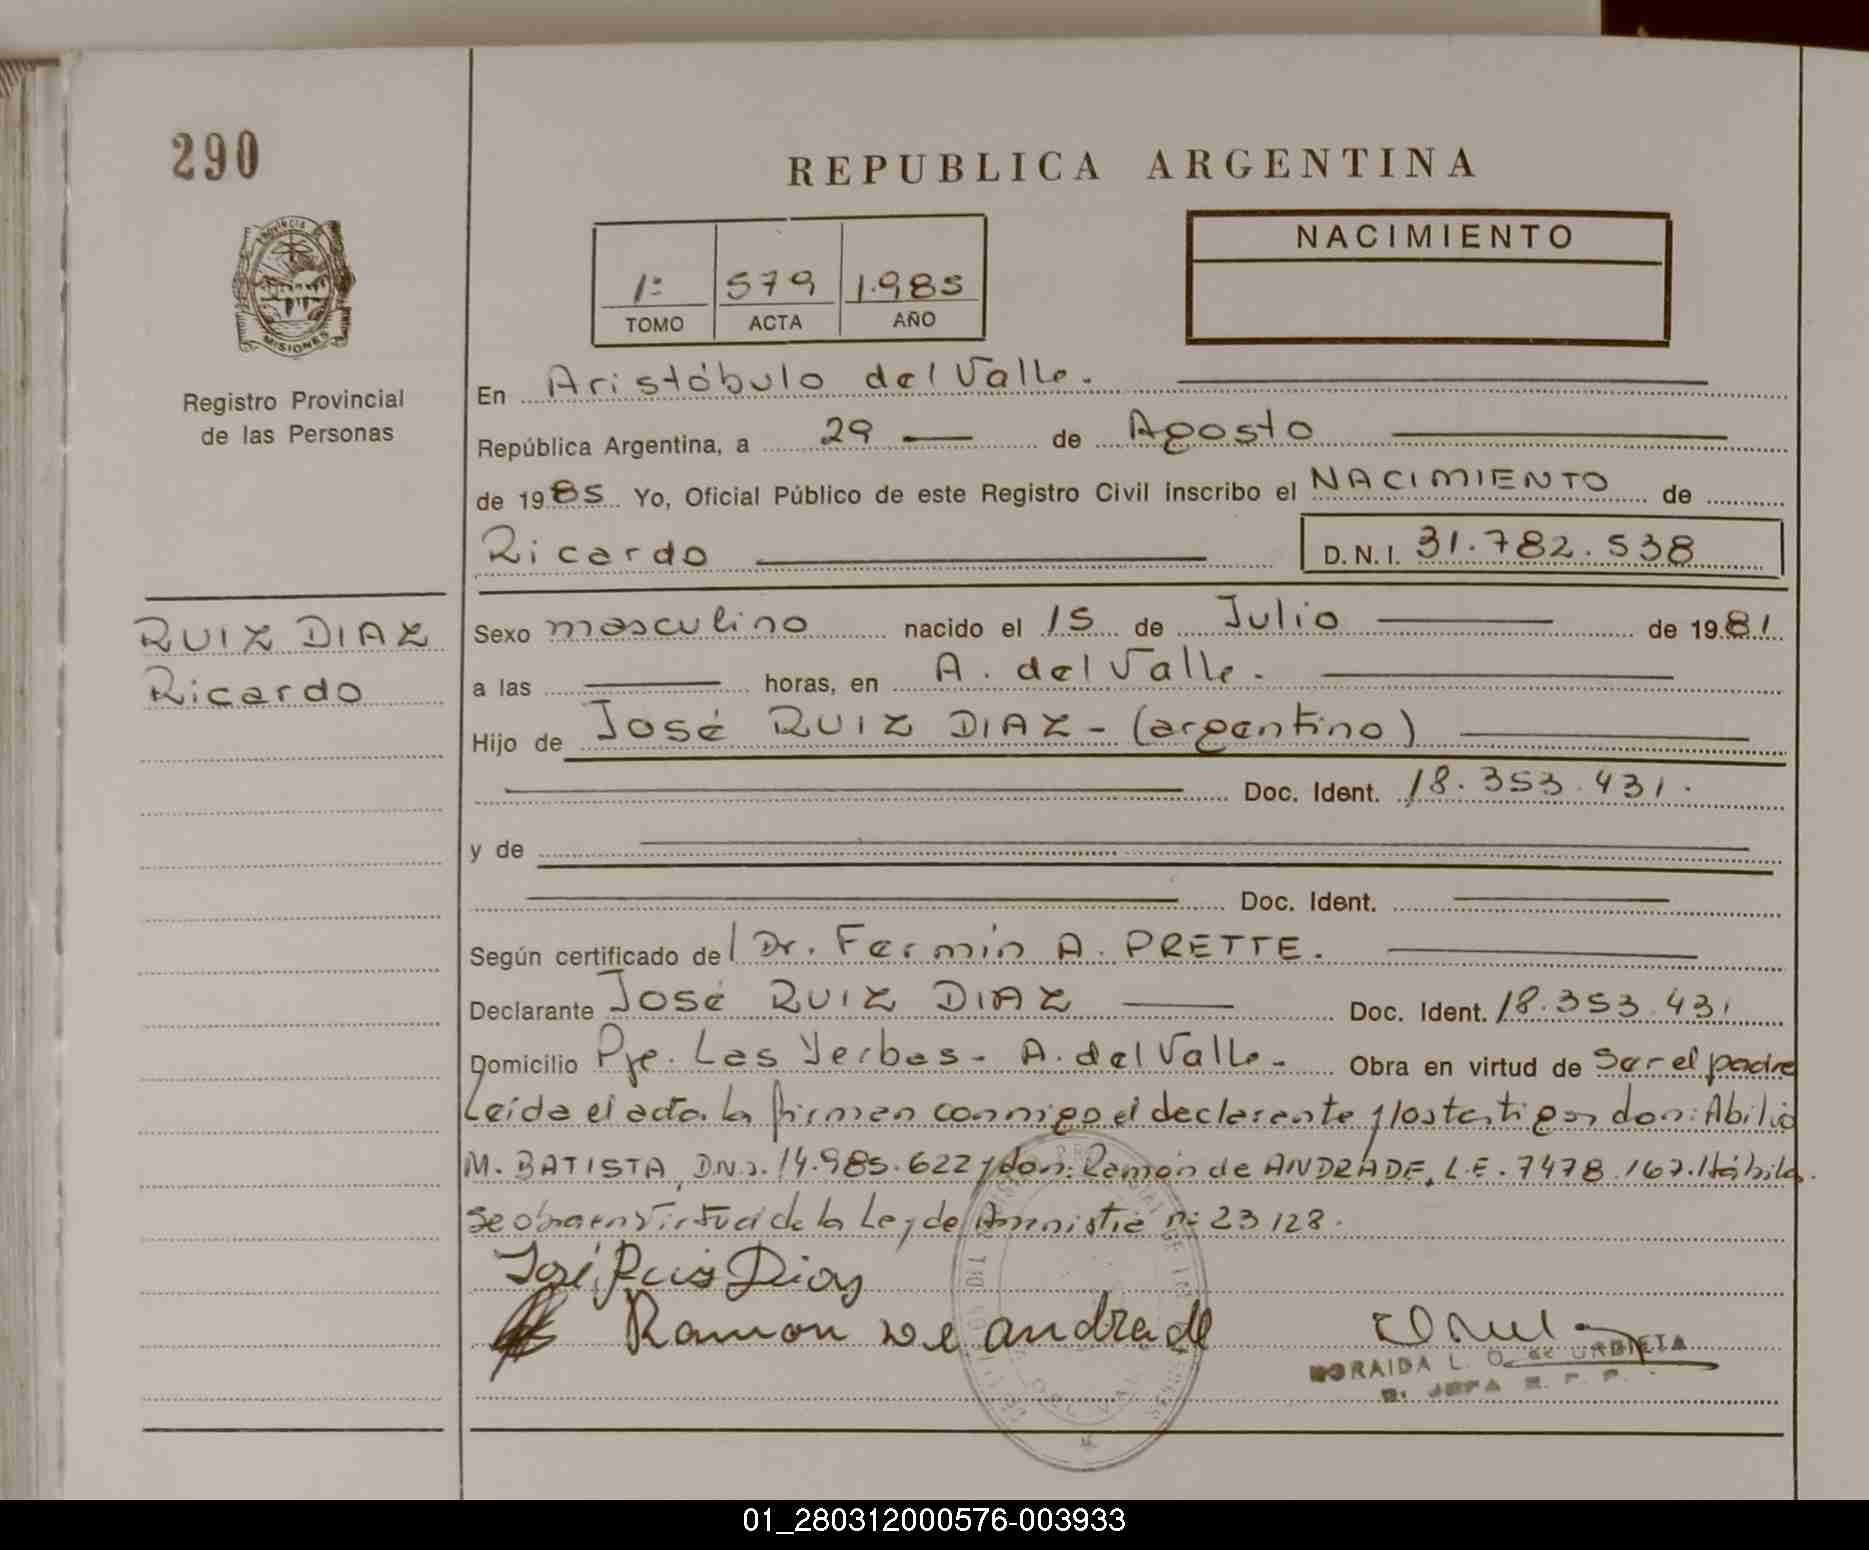 290
REPUBLICA ARGENTINA
Provincia de
MISIONES
Registro Provincial
de las Personas
1º 579 1.985
TOMO ACTA AÑO
NACIMIENTO
En Aristóbulo del Valle.
República Argentina, a 29 de Agosto
de 1985 Yo, Oficial Público de este Registro Civil inscribo el NACIMIENTO de
Ricardo D.N.I. 31.782.538
RUIZ DIAZ
Ricardo
Sexo masculino nacido el 15 de Julio de 1981
a las horas, en A. del Valle.
Hijo de José RUIZ DIAZ - (argentino)
Doc. Ident. 18.353.431.
y de
Doc. Ident.
Según certificado del Dr. Fermín A. PRETTE.
Declarante José RUIZ DIAZ Doc. Ident. 18.353.431
Domicilio Pje. Las Yerbas - A. del Valle - Obra en virtud de Ser el padre
Leída el acta la firman conmigo el declarante y los testigos don: Abilio
M. BATISTA, DNI. 14.985.622 y don: Ramón de ANDRADE, L.E. 7478.167. Hábiles.
Se obra en virtud de la Ley de Amnistía nº 23128.
José Ruiz Diaz
Ramon de andrade
L. O. de URBIETA
JEFA R. P. P.
01_280312000576-003933